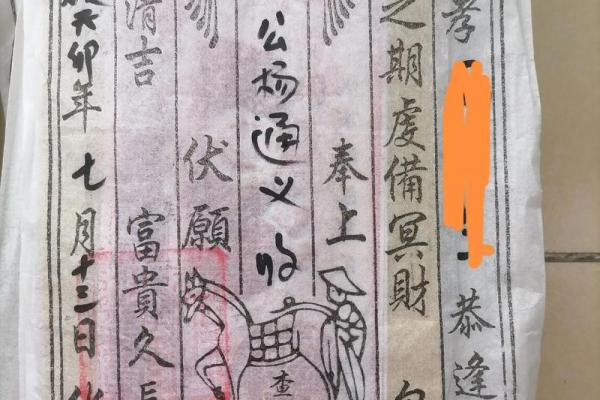 孝
恭逢
之期虔備冥財包
奉上
公杨通义收
查
伏願
清吉
富貴久長
癸卯年七月十三日化